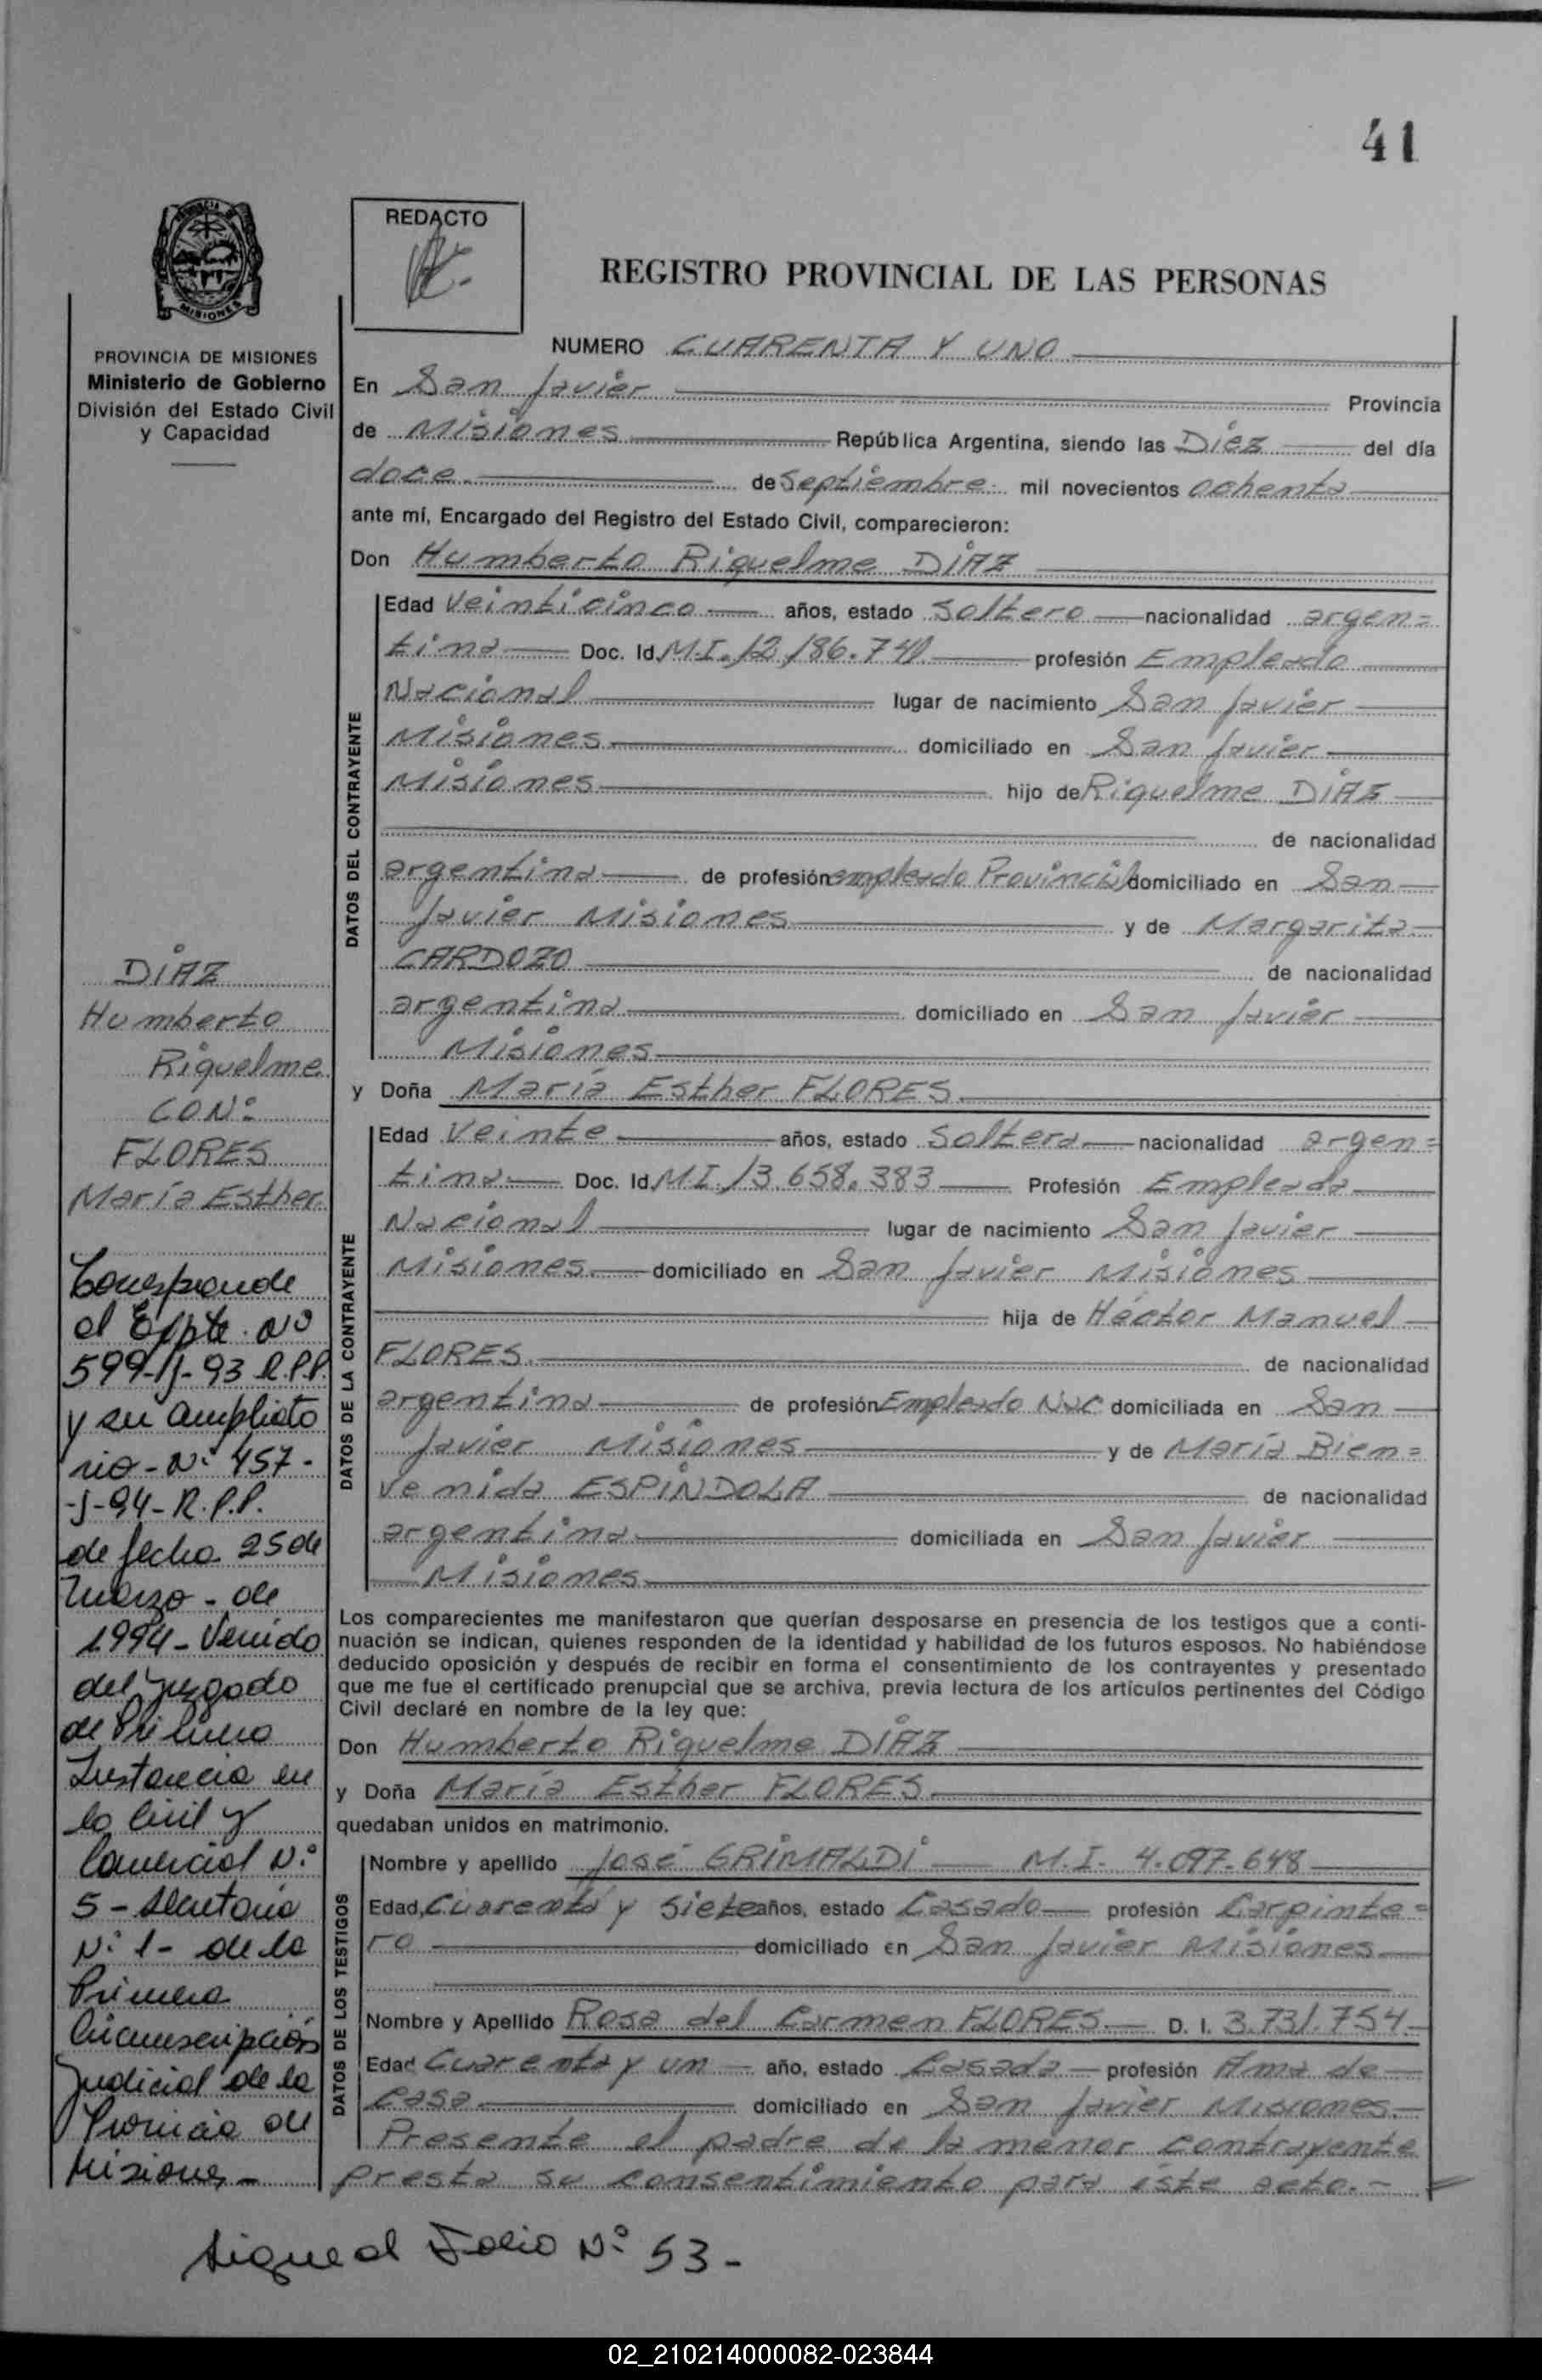 41
REDACTO
REGISTRO PROVINCIAL DE LAS PERSONAS
MISIONES
PROVINCIA DE MISIONES
Ministerio de Gobierno
División del Estado Civil
y Capacidad
NUMERO CUARENTA Y UNO
En San Javier Provincia
de Misiones República Argentina, siendo las Diez del día
doce de Septiembre mil novecientos ochenta
ante mí, Encargado del Registro del Estado Civil, comparecieron:
Don Humberto Riquelme DIAZ
DATOS DEL CONTRAYENTE
Edad Veinticinco años, estado Soltero nacionalidad argen=
tina Doc. Id. M.I. 12.186.740 profesión Empleado
Nacional lugar de nacimiento San Javier
Misiones domiciliado en San Javier
Misiones hijo de Riquelme DIAZ
de nacionalidad
argentina de profesión empleado Provincial domiciliado en San
Javier Misiones y de Margarita
CARDOZO de nacionalidad
argentina domiciliado en San Javier
Misiones
y Doña María Esther FLORES
DATOS DE LA CONTRAYENTE
Edad Veinte años, estado Soltera nacionalidad argen=
tina Doc. Id. M.I. 13.658.383 Profesión Empleada
Nacional lugar de nacimiento San Javier
Misiones domiciliado en San Javier Misiones
hija de Héctor Manuel
FLORES de nacionalidad
argentina de profesión Empleado Nac domiciliada en San
Javier Misiones y de María Bien=
venida ESPINDOLA de nacionalidad
argentina domiciliada en San Javier
Misiones
Los comparecientes me manifestaron que querían desposarse en presencia de los testigos que a conti-
nuación se indican, quienes responden de la identidad y habilidad de los futuros esposos. No habiéndose
deducido oposición y después de recibir en forma el consentimiento de los contrayentes y presentado
que me fue el certificado prenupcial que se archiva, previa lectura de los artículos pertinentes del Código
Civil declaré en nombre de la ley que:
Don Humberto Riquelme DIAZ
y Doña María Esther FLORES
quedaban unidos en matrimonio.
DATOS DE LOS TESTIGOS
Nombre y apellido José GRIMALDI M.I. 4.097.648
Edad Cuarenta y siete años, estado Casado profesión Carpinte=
ro domiciliado en San Javier Misiones
Nombre y Apellido Rosa del Carmen FLORES D. I. 3.731.754
Edad Cuarenta y un año, estado Casada profesión Ama de
casa domiciliado en San Javier Misiones
Presente el padre de la menor contrayente
presta su consentimiento para éste acto.-
DIAZ
Humberto
Riquelme
CON:
FLORES
María Esther
Corresponde
al Expte. Nº
599-J-93 R.P.P.
y su ampliato
rio-Nº 457-
-J-94-R.P.P.
de fecha 25 de
Marzo - de
1994-Venido
del Juzgado
de Primera
Instancia en
lo Civil y
Comercial Nº
5-Secretaria
Nº 1- de la
Primera
Circunscripción
Judicial de la
Provincia de
Misiones-
Sigue al Folio Nº 53-
02_210214000082-023844